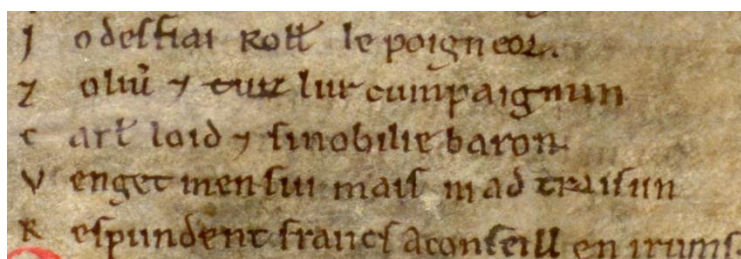 J odesfiai Roll̃ le poigneor.
Z oliu̾ ⁊ tuz lur cumpaignun
C arl̃ loid ⁊ si nobilie baron.
V enget men sui mais ni ad traisun
R espundent franc̾s a conseill en irums.